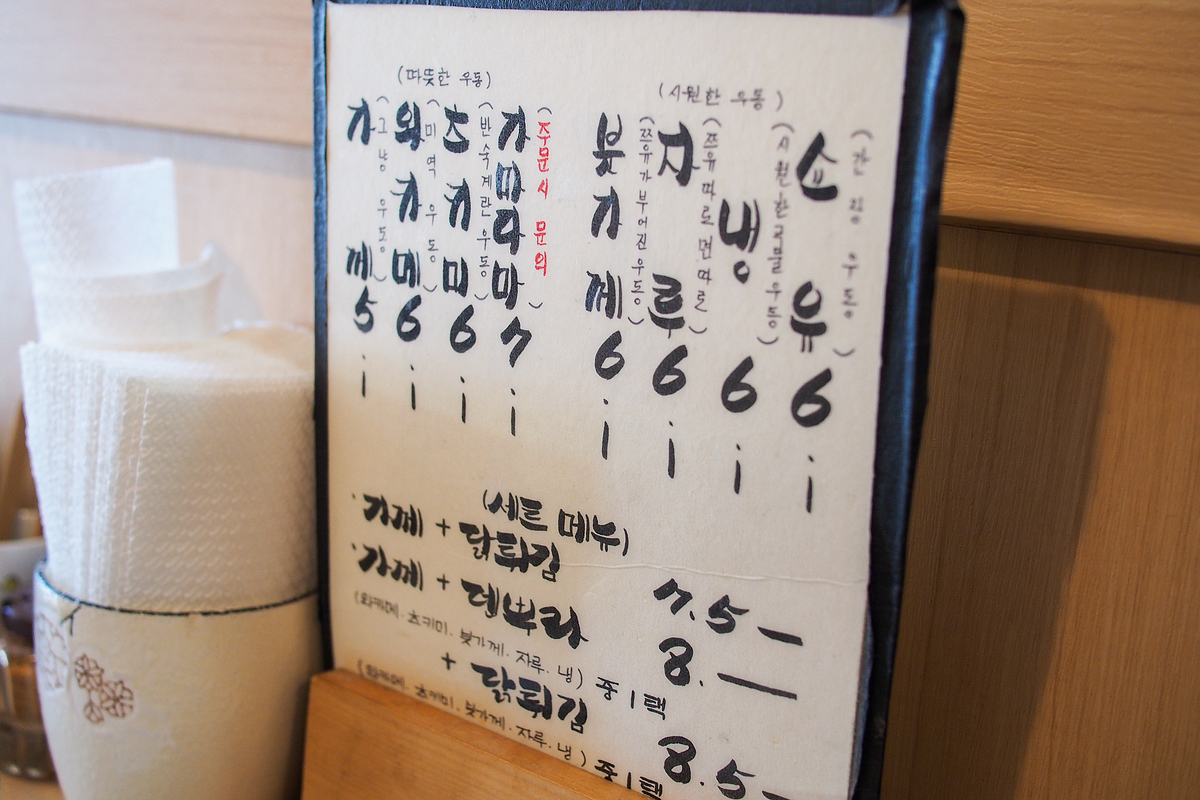 (따뜻한 우동)
가께 5 i
(그냥 우동)
와카메 6 i
(미역 우동)
츠키미 6 i
(반숙계란우동)
가마다마 7 i
(주문시 문의)
(시원한 우동)
붓가께 6 i
(쯔유가 부어진 우동)
자루 6 i
(쯔유따로 면따로)
냉 6 i
(시원한 국물 우동)
쇼유 6 i
(간장 우동)
(세트 메뉴)
· 가께 + 닭튀김 7.5 —
· 가께 + 덴뿌라 8. —
(와카메. 츠키미. 붓가께. 자루. 냉) 중 1택
+ 닭튀김 8.5 —
(와카메. 츠키미. 붓가께. 자루. 냉) 중 1택